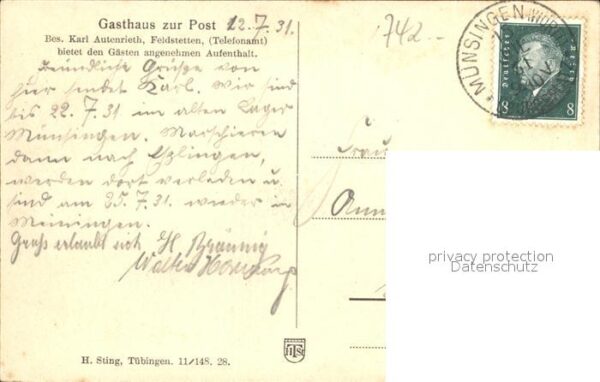 Gasthaus zur Post 12.7.31.
Bes. Karl Autenrieth, Feldstetten, (Telefonamt)
bietet den Gästen angenehmen Aufenthalt.
Freundliche Grüße von
hier sendet Karl. Wir sind
bis 22.7.31 im alten Lager
Münsingen. Marschieren
dann nach Eßlingen,
werden dort verladen u.
sind am 25.7.31 wieder in
Meiningen.
Gruß erlaubt sich H. Bräunig
Walter
H. Sting, Tübingen. 11/148. 28.
1742
MÜNSINGEN (WÜRTT
Deutsches Reich
8 8
Frau
privacy protection
Datenschutz